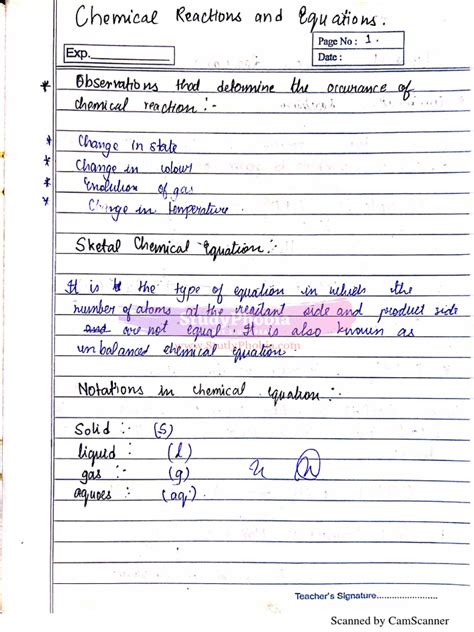 Chemical Reactions and Equations.
Page No : 1.
Exp.
Date :
* Observations that determine the occurance of
chemical reaction :-
* Change in state
* Change in colour
* Evolution of gas
* Change in temperature
Sketal Chemical Equation :-
It is the type of equation in which the
number of atoms at the reactant side and product side
are not equal. It is also known as
unbalanced chemical equation
StudyPhobia
www.StudyPhobia.com
Notations in chemical equation :-
Solid :- (S)
liquid : (l)
gas :- (g)
aques : (aq.)
Teacher's Signature
Scanned by CamScanner